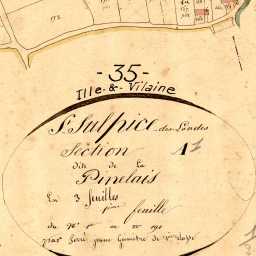 172
- 35 -
Ille-&-Vilaine
St. Sulpice des Landes
Section A1
dite de La
Pinelais
En 3 feuilles
feuille
du No 1 au
par géomètre de 1ère classe